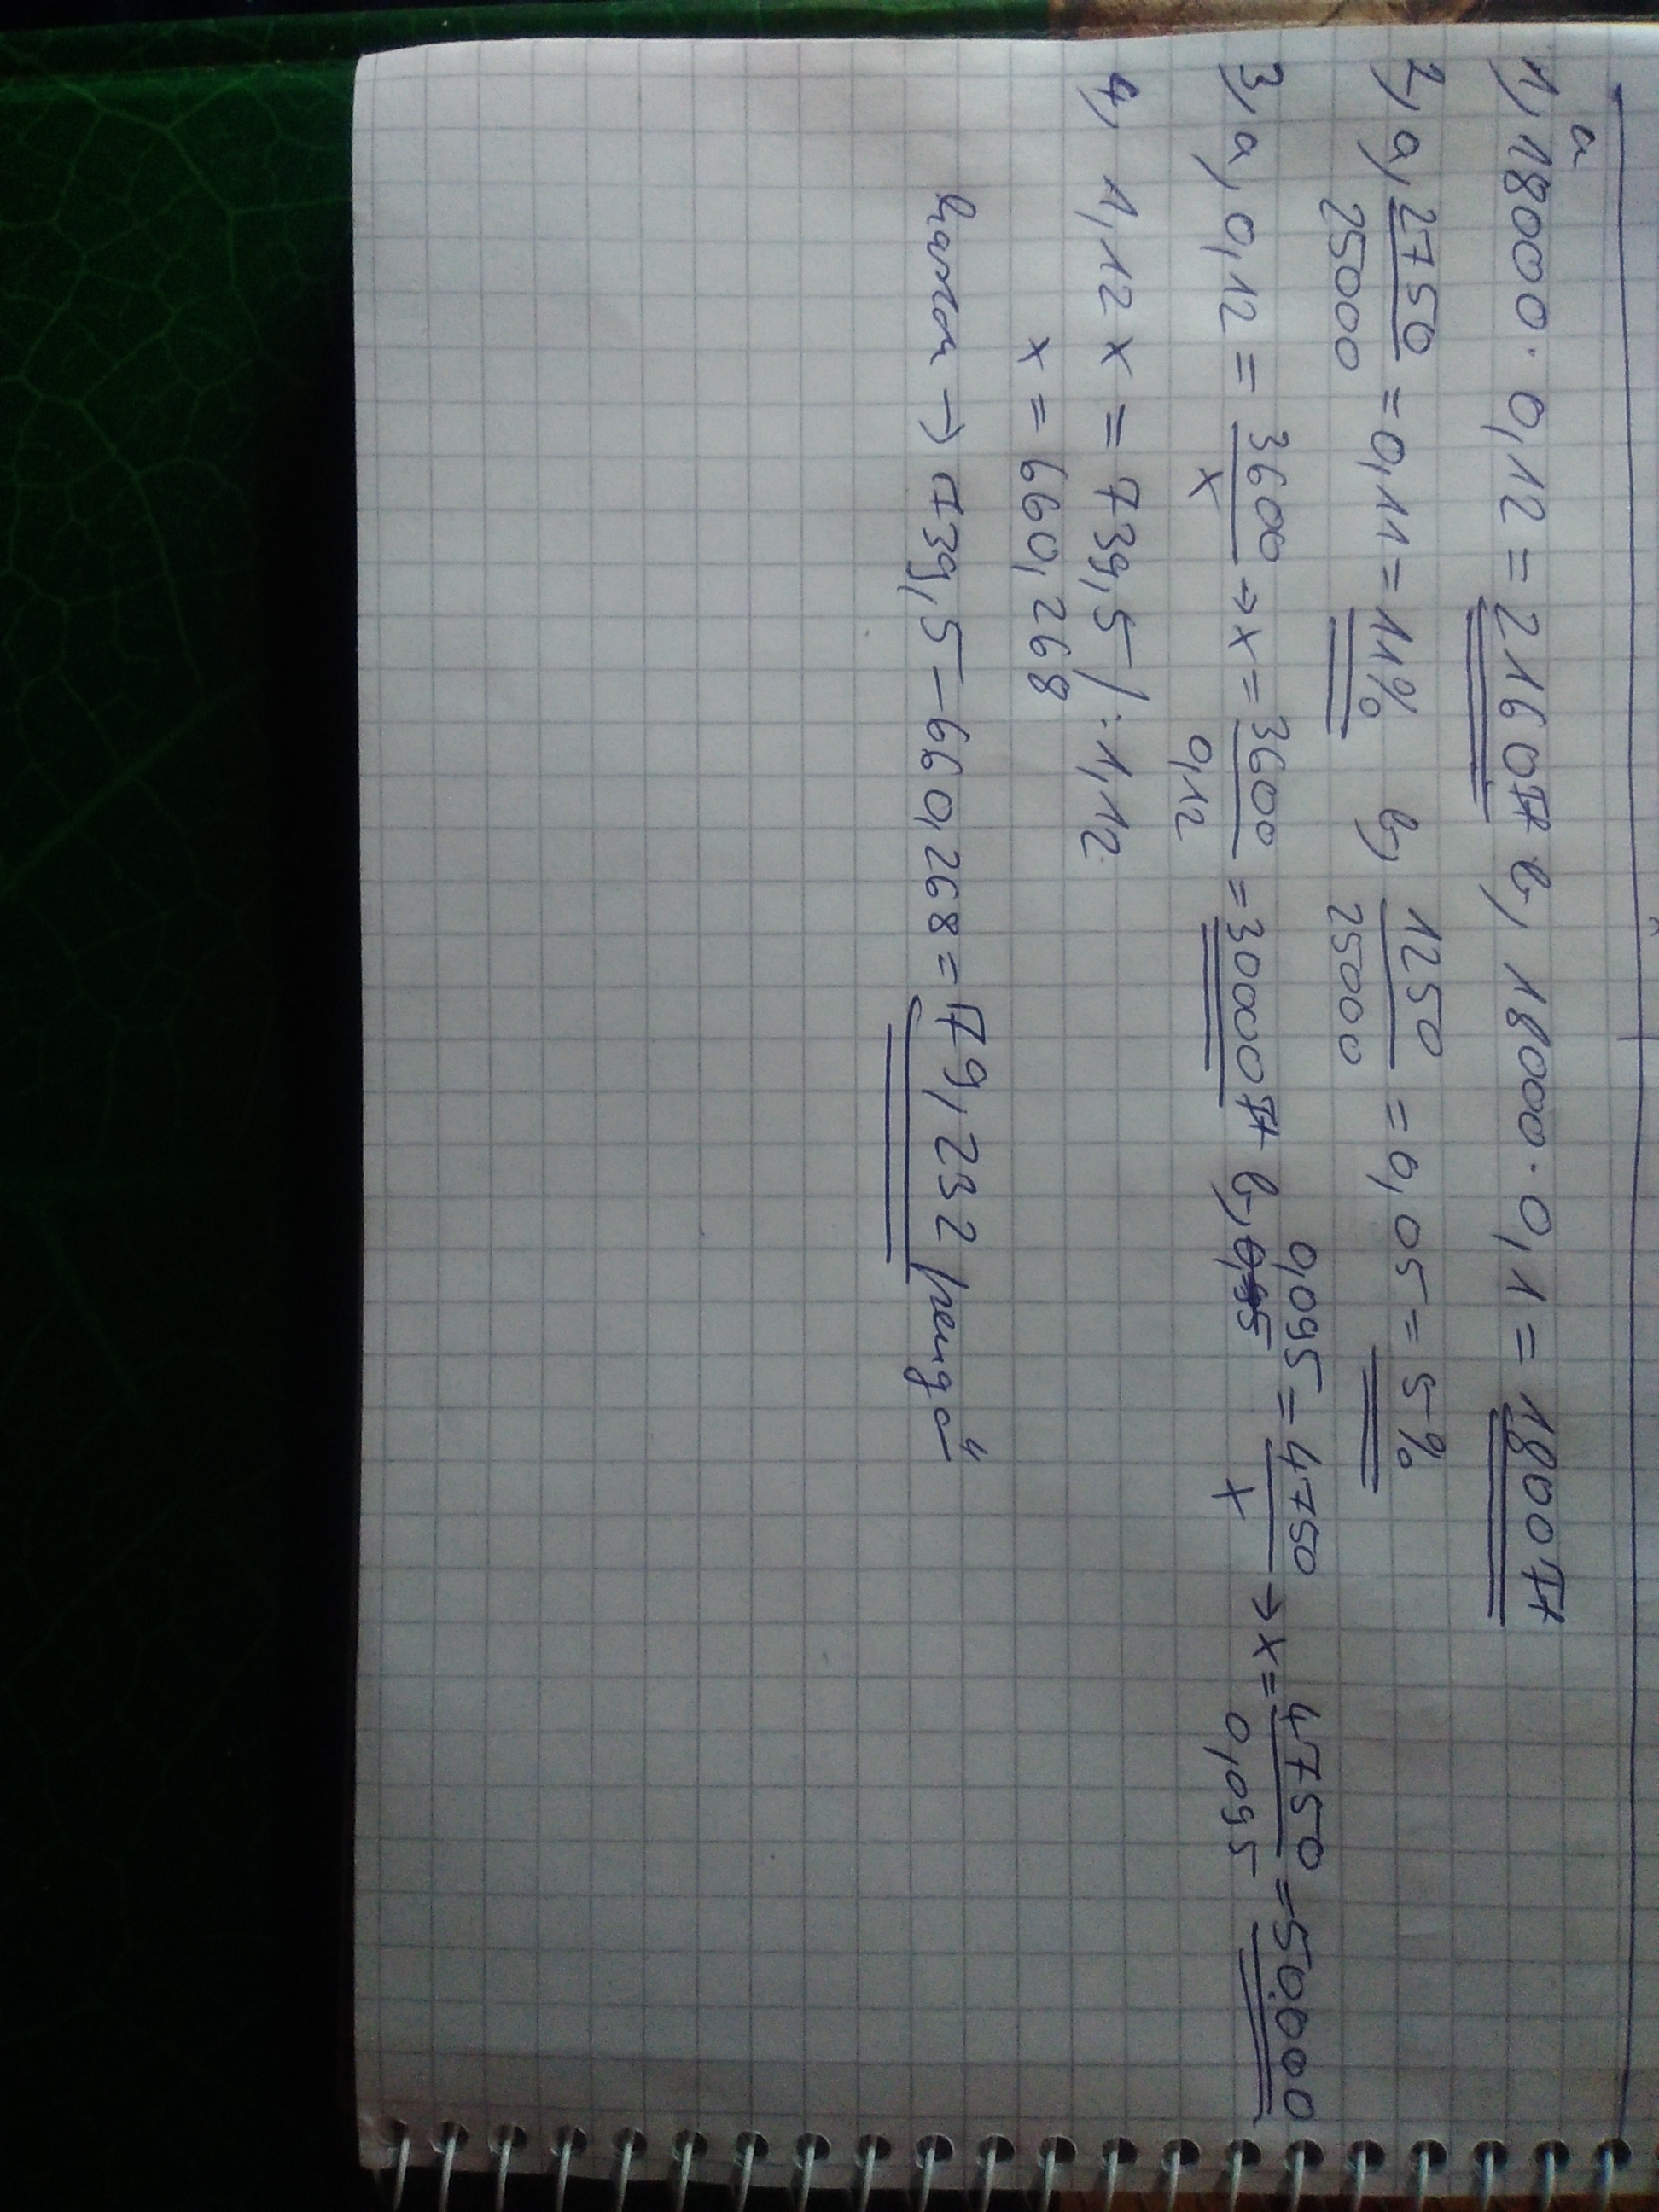 1, a 18000 · 0,12 = 2160 Ft b, 18000 · 0,1 = 1800 Ft
2, a, 2750/25000 = 0,11 = 11% b, 1250/25000 = 0,05 = 5%
3, a, 0,12 = 3600/x → x = 3600/0,12 = 30000 Ft b, 0,095 = 4750/x → x = 4750/0,095 = 50.000
4, 1,12 x = 739,5 / : 1,12
x = 660,268
haszon → 739,5 - 660,268 = 79,232 pengő